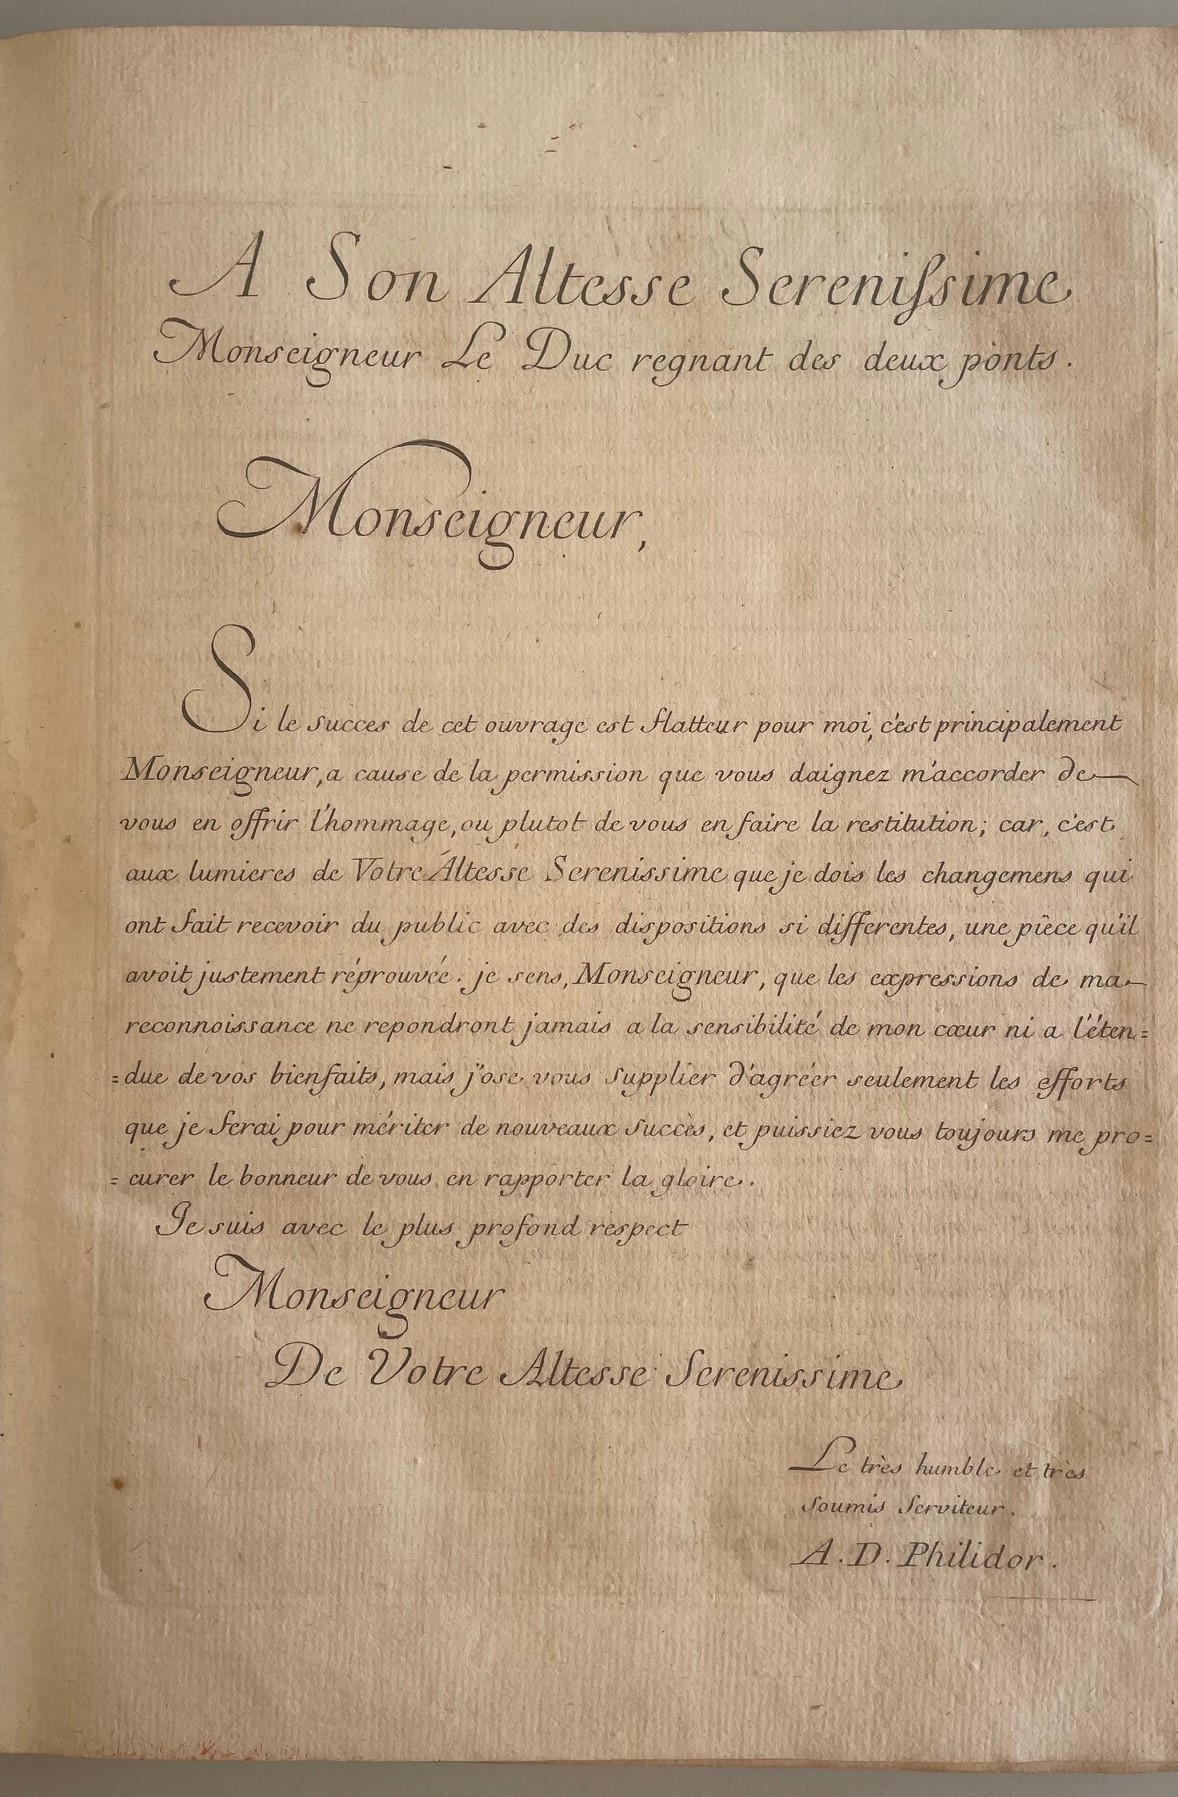 A Son Altesse Sereniſsime
Monseigneur Le Duc regnant des deux ponts.
Monseigneur,
Si le succes de cet ouvrage est flatteur pour moi, c'est principalement
Monseigneur, a cause de la permission que vous daignez m'accorder de
vous en offrir l'hommage, ou plutot de vous en faire la restitution; car, c'est
aux lumieres de Votre Altesse Serenissime que je dois les changemens qui
ont fait recevoir du public avec des dispositions si differentes, une pièce qu'il
avoit justement réprouvée. je sens, Monseigneur, que les expressions de ma
reconnoissance ne repondront jamais a la sensibilité de mon cœur ni a l'éten=
=due de vos bienfaits, mais j'ose vous supplier d'agréer seulement les efforts
que je ferai pour mériter de nouveaux succès, et puissiez vous toujours me pro=
=curer le bonneur de vous en rapporter la gloire.
Je suis avec le plus profond respect
Monseigneur
De Votre Altesse Serenissime
Le très humble et très
soumis Serviteur.
A. D. Philidor.